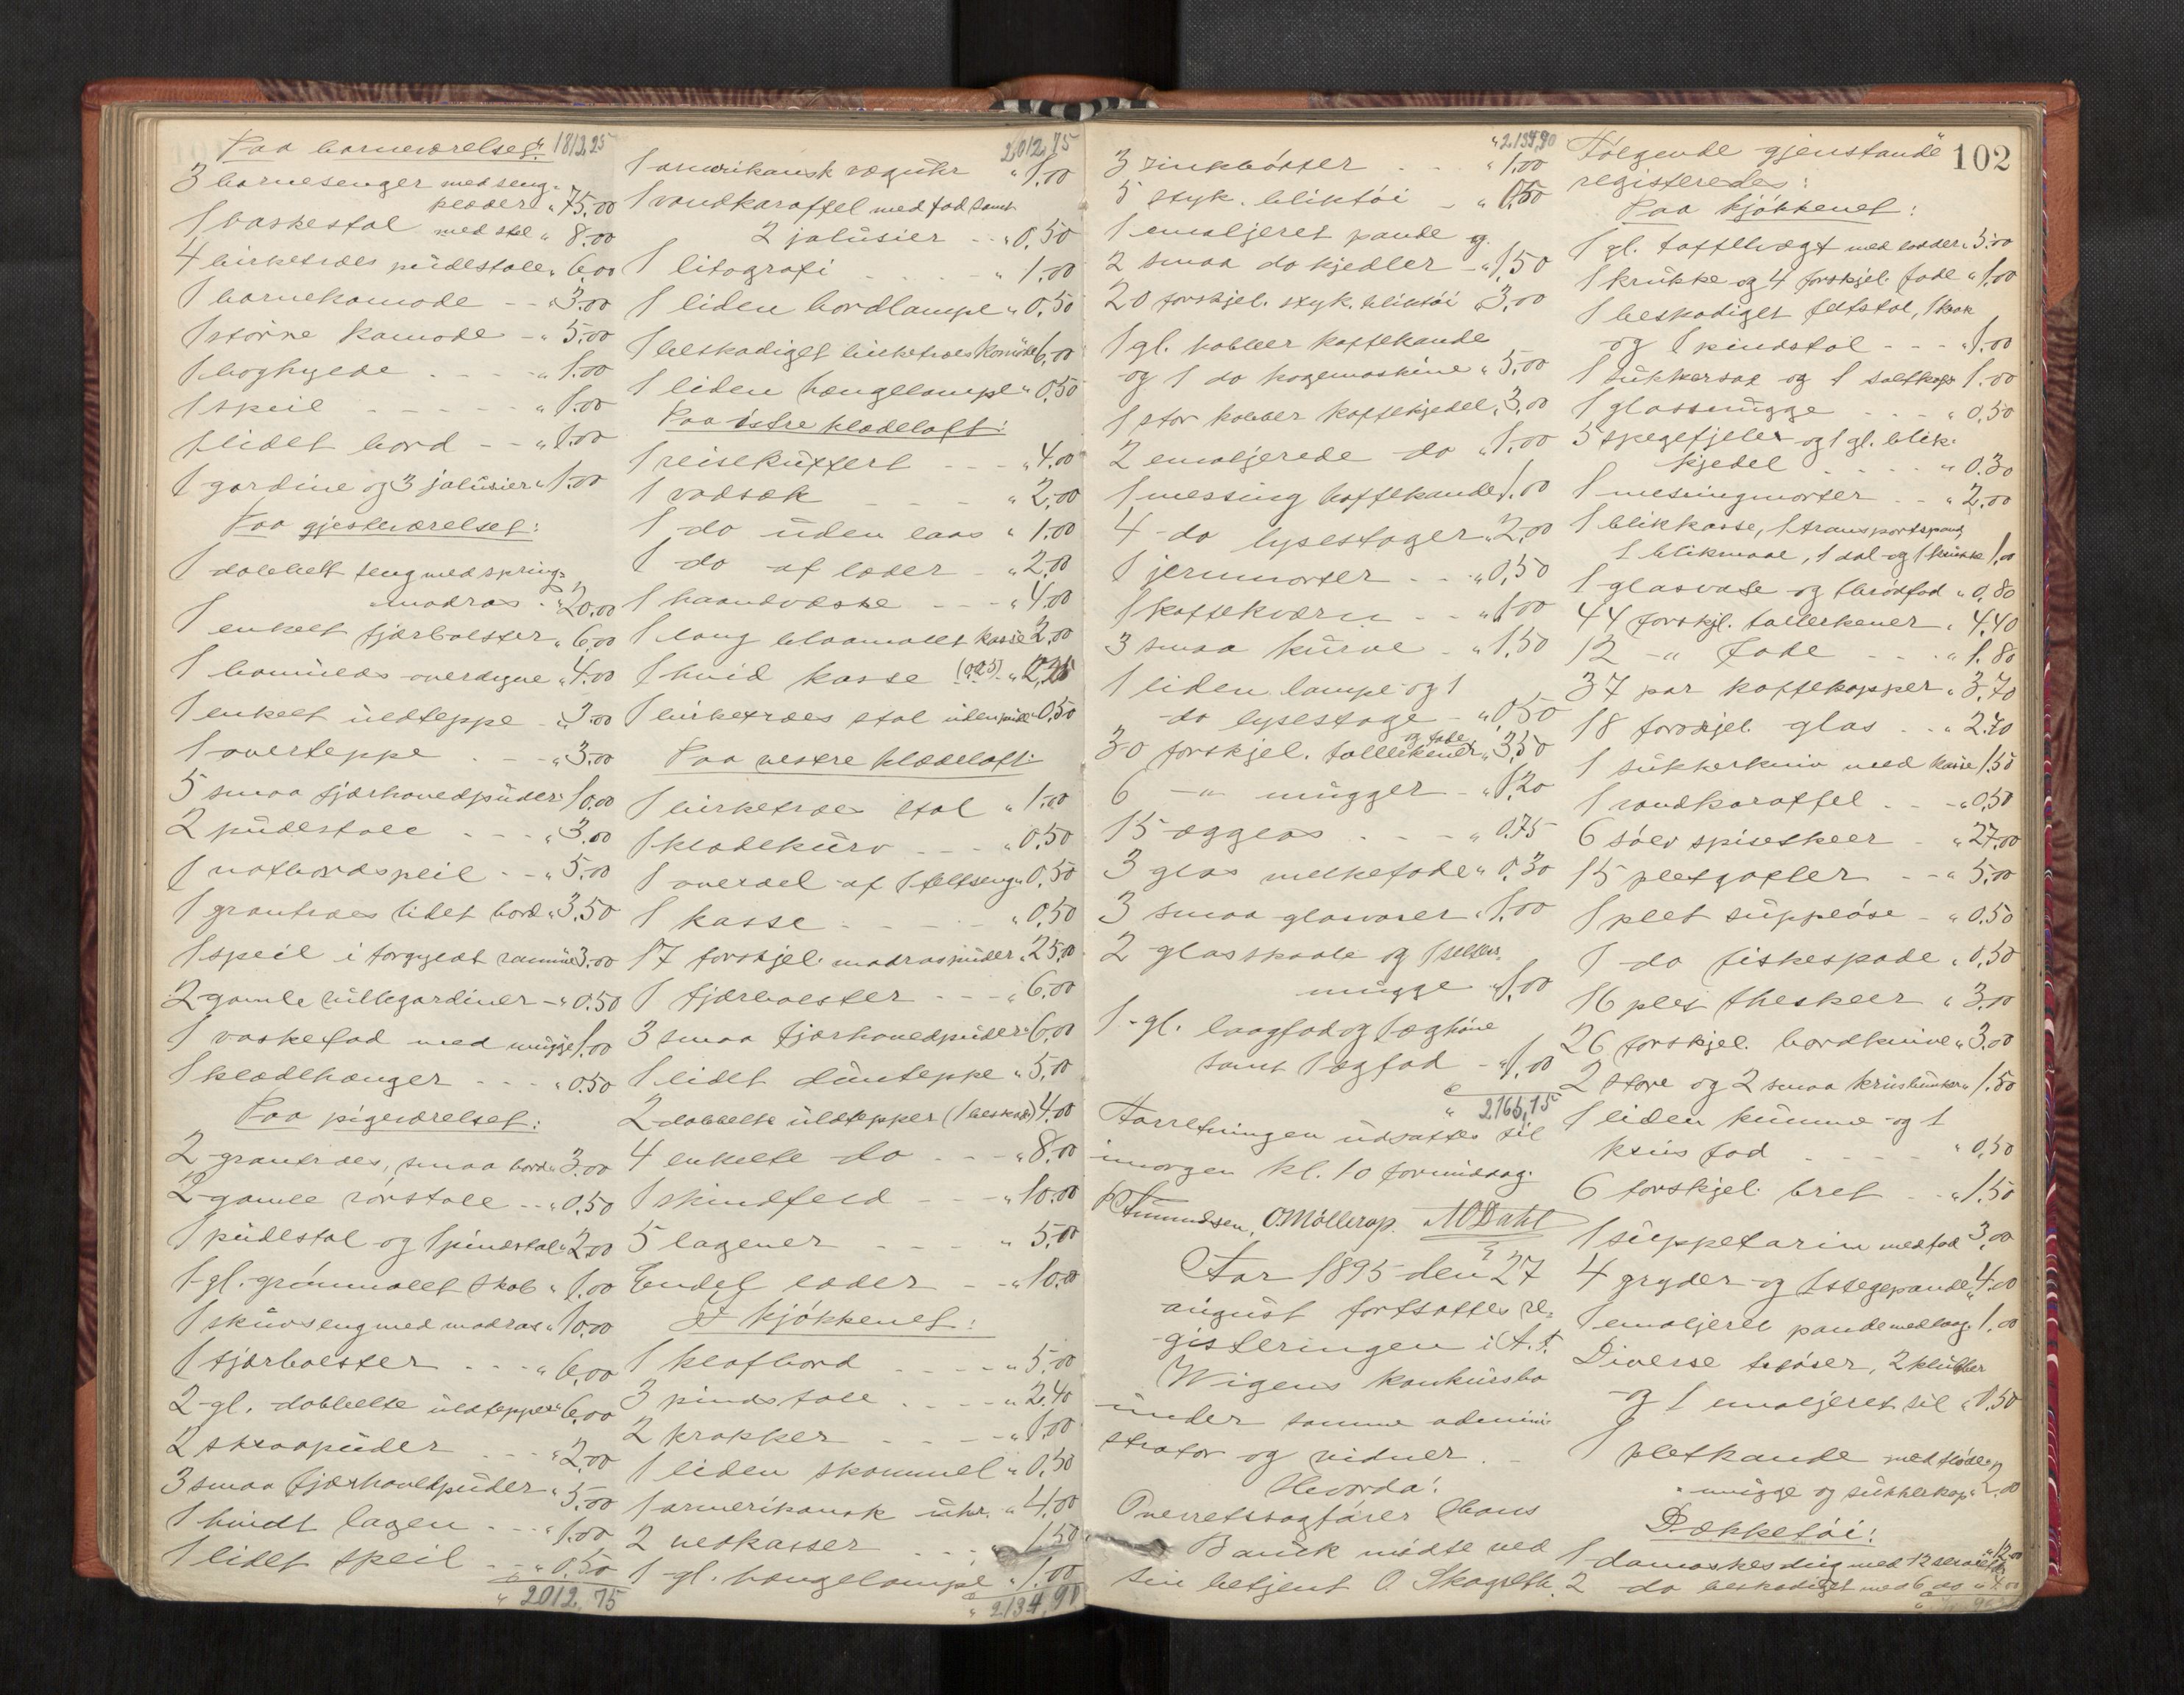 Paa barneværelset: 1812,25
3 barnesenger med seng-
klæder „ 75,00
1 vaskestol med stel „ 8,00
4 birketræs pudestole „ 6,00
1 barnekomode - - „ 3,00
1 större komode - „ 5,00
1 boghylde - - - „ 1,00
1 speil - - - - - „ 1,00
1 lidet bord - - „ 1,00
1 gardine og 3 jalusier „ 1,00
Paa gjesteværelset:
1 dobbelt seng med spring-
madras - „ 20,00
1 enkelt fjærbolster „ 6,00
1 bomulds overdyne „ 4,00
1 enkelt uldteppe - „ 3,00
1 overteppe - - „ 3,00
5 smaa fjærhovedpuder „ 10,00
2 pudestole - - - „ 3,00
1 natbordspeil - - „ 5,00
1 grantræs lidet bord „ 3,50
1 speil i forgyldt ramme 3,00
2 gamle rullegardiner - „ 0,50
1 vaskefad med mugge 1,00
1 klædehænger - - - „ 0,50
Paa pigeværelset:
2 grantræs, smaa bord „ 3,00
2 gamle rörstole - - „ 0,50
1 pudestol og 1 pindstol „ 2,00
1 gl. grönmalet skab „ 1,00
1 skuvseng med madras „ 10,00
1 fjærbolster - - - „ 6,00
2 gl. dobbelte uldtepper „ 6,00
2 skraapuder - - - „ 2,00
3 smaa fjærhovedpuder „ 5,00
1 hvidt lagen - - - „ 1,00
1 lidet speil - - „ 0,50
„ 2012,75
2,012,75
1 amerikansk væguhr „ 1,00
1 vandkaraffel med fad samt
2 jalusier - - „ 0,50
1 litografi - - - - „ 1,00
1 liden bordlampe „ 0,50
1 beskadiget birketræs komode 6,00
1 liden hængelampe „ 0,50
Paa östre klædeloft:
1 reisekuffert - - - „ 4,00
1 vadsæk - - - „ 2,00
1 do uden laas „ 1,00
1 do af læder - „ 2,00
1 haandvæske - - - „ 4,00
1 lang blaamalet kasse 2,00
1 hvid kasse (0,25) - „
1 birketræs stol uden pude „ 0,50
Paa vestre klædeloft:
1 birketræs stol „ 1,00
1 klædekurv - - - „ 0,50
1 overdel af 1 feltseng „ 0,50
1 kasse - - - - „ 0,50
17 forskjel. madraspuder „ 25,00
1 fjærbolster - - - „ 6,00
3 smaa fjærhovedpuder „ 6,00
1 lidet dunteppe „ 5,00
2 dobbelte uldtepper (1 beskad) 4,00
4 enkelte do - - - „ 8,00
1 skindfeld - - - „ 10,00
5 lagener - - - „ 5,00
Endel læder - - „ 10,00
I kjökkenet:
1 klafbord - - - - „ 5,00
3 pindstole - - - „ 2,40
2 krakker - - - - „ 1,00
1 liden skammel „ 0,50
1 amerikansk uhr. „ 4,00
2 vedkasser - - - „ 1,50
1 gl. hængelampe „ 1,00
„ 2134,90
„ 2,134,90
3 zinkbötter - - „ 1,00
5 styk. bliktöi - „ 0,50
1 emaljeret pande og
2 smaa do kjedler - „ 1,50
20 forskjel. styk. bliktöi „ 3,00
1 gl. kobber kaffekande
og 1 do kogemaskine „ 5,00
1 stor kobber kaffekjedel „ 3,00
2 emaljerede do „ 1,00
1 messing kaffekande 1,00
4 do lysestager „ 2,00
1 jernmorter - - „ 0,50
1 kaffekværn - - „ 1,00
3 smaa kurve - „ 1,50
1 liden lampe og 1
do lysestage - „ 0,50
30 forskjel. tallerkener og fade „ 3,50
6 -„- mugger - „ 1,20
15 ægglas - - - „ 0,75
3 glas melkefade „ 0,30
3 smaa glasvaser „ 1,00
2 glasskaale og 1 selters-
mugge „ 1,00
1 gl. laagfad og 1 æghöne
samt 1 ægfad - „ 1,00
„ 2165,15
Forretningen udsattes til
imorgen kl. 10 formiddag.
O. Möllerop. A O Dahl
Aar 1895 den 27
august fortsattes re-
gisteringen i A. F.
Wigens konkursbo
under samme admini-
strator og vidner. -
Hvorda:
Overretssagförer Hans
Bauck mödte ved
sin betjent O Skogseth.
102
Fölgende gjenstande
registeredes:
Paa kjökkenet:
1 gl. taffelvægt med lodder „ 5,00
1 krukke og 4 forskjel. fade „ 1,00
1 beskadiget feltstol, 1 krak
og 1 pindstol - - - „ 1,00
1 sukkersax og 1 saltkop 1,00
1 glasmugge - - - „ 0,50
5 spegefjeler og 1 gl. blik-
kjedel - - - - „ 0,30
1 messingmorter - - „ 2,00
1 blikkasse, 1 transportspand,
1 blikmaal, 1 dal og 1 krukke 1,00
1 glasvase og 1 brödfad „ 0,80
44 forskjl. tallerkener „ 4,40
12 -„- fade - - - „ 1,80
37 par kaffekopper „ 3,70
18 forskjel. glas - - „ 2,70
1 sukkerkniv med kasse 1,50
1 vandkaraffel - - - „ 0,50
6 sölv spiseskeer - „ 27,00
15 pletgafler - - „ 5,00
1 plet suppeöse - „ 0,50
1 do fiskespade „ 0,50
16 plet theskeer „ 3,00
26 forskjel. bordknive „ 3,00
2 store og 2 smaa „ 1,50
1 liden kumme og 1
krus fad - - - - „ 0,50
6 forskjel. bret - - „ 1,50
1 suppeterin med fad 3,00
4 gryder og 1 stegepande „ 4,00
1 emaljeret pande med laag „ 1,00
Diverse, 2
og 1 emaljeret sil „ 0,50
1 pletkande med flöde-
mugge og sukkerkop „ 2,00
Dækketöi:
1 damaskesdug med 12 servietter „ 12,00
2 do beskadiget med 6 do